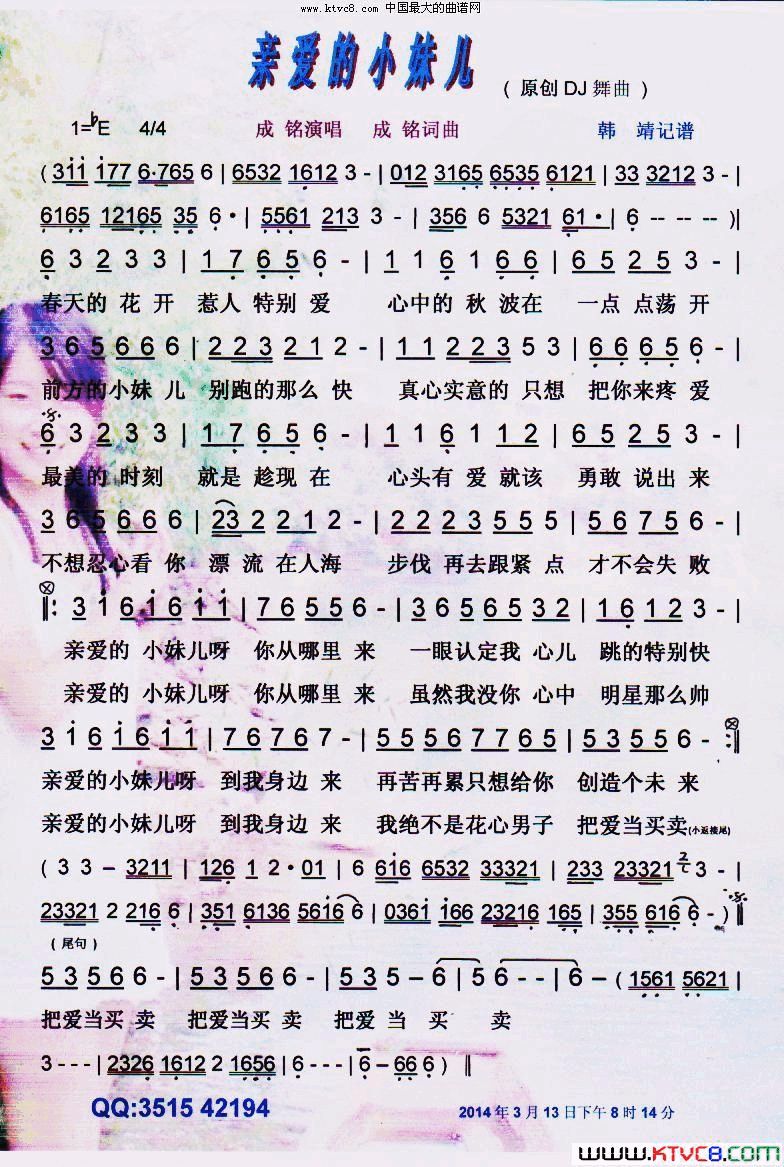 www.ktvc8.com 中国最大的曲谱网
亲爱的小妹儿
( 原创 DJ 舞曲 )
1=♭E 4/4 成 铭演唱 成 铭词曲 韩 靖记谱
( 3 1 1 1 7 7 6·7 6 5 6 | 6532 1612 3 - | 012 3165 6535 6121 | 33 3212 3 - |
6165 12165 35 6 · | 5561 213 3 - | 356 6 5321 61· | 6 -- -- --)|
6 3 2 3 3 | 1 7 6 5 6 - | 1 1 6 1 6 6 | 6 5 2 5 3 -
春天的 花 开 惹人 特别 爱 心中的 秋 波在 一点 点荡 开
3 6 5 6 6 6 | 2 2 3 2 1 2 - | 1 1 2 2 3 5 3 | 6 6 6 5 6 -
前方的小妹 儿 别跑的那么 快 真心实意的 只想 把你来疼 爱
6 3 2 3 3 | 1 7 6 5 6 - | 1 1 6 1 1 2 | 6 5 2 5 3 -
最美的 时刻 就是 趁现 在 心头有 爱 就该 勇敢 说出 来
3 6 5 6 6 6 | 23 2 2 1 2 - | 2 2 2 3 5 5 5 | 5 6 7 5 6 -
不想忍心看 你 漂 流 在人海 步伐 再去跟紧 点 才不会失 败
‖: 3 1 6 1 6 1 1 | 7 6 5 5 6 - | 3 6 5 6 5 3 2 | 1 6 1 2 3
亲爱的 小妹儿呀 你从哪里 来 一眼认定我 心儿 跳的特别快
亲爱的 小妹儿呀 你从哪里 来 虽然我没你 心中 明星那么帅
3 1 6 1 6 1 1 | 7 6 7 6 7 - | 5 5 5 6 7 7 6 5 | 5 3 5 5 6 - :‖
亲爱的小妹儿呀 到我身边 来 再苦再累只想给你 创造个未 来
亲爱的小妹儿呀 到我身边 来 我绝不是花心男子 把爱当买 卖(小返接尾)
( 3 3 – 3211 | 126 1 2 · 01 | 6 616 6532 33321 | 233 23321 2 3 - |
23321 2 216 6 | 351 6136 5616 6 | 0361 166 23216 165 | 355 616 6 - ) ‖
( 尾句 )
5 3 5 6 6 - | 5 3 5 6 6 - | 5 3 5 – 6 | 5 6 - - - | 6 – ( 1561 5621 |
把爱当买 卖 把爱当买 卖 把爱 当 买 卖
3 - - - | 2326 1612 2 1656 | 6 - - - | 6 – 66 6 ) ‖
QQ:3515 42194
2014 年 3 月 13 日下午 8 时 14 分
www.KTVC8.com